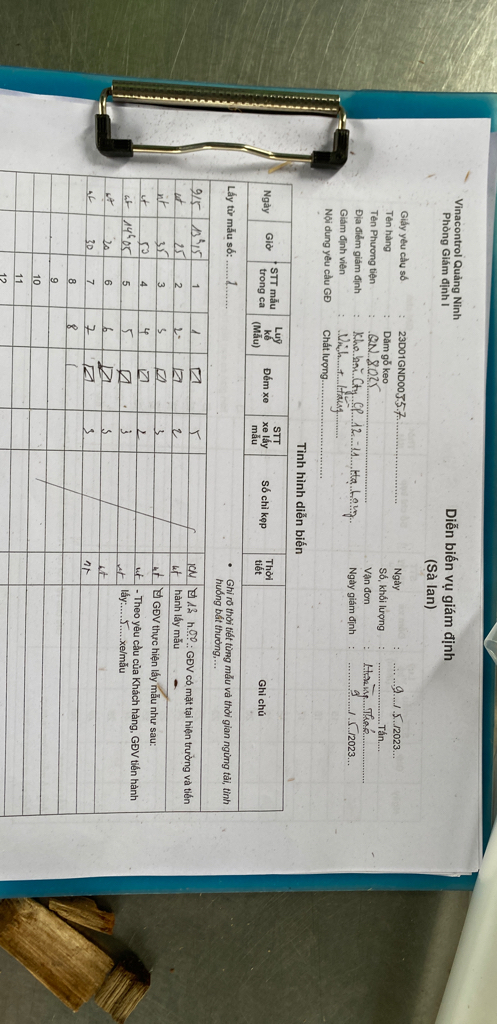 Vinacontrol Quảng Ninh
Phòng Giám định I
Diễn biến vụ giám định
(Sà lan)
Giấy yêu cầu số : 23D01GND00357
Ngày : 9/5/2023
Tên hàng : Dăm gỗ keo
Số, khối lượng : Tấn
Tên Phương tiện : QN 8025
Vận đơn :
Địa điểm giám định :
Ngày giám định : 9/5/2023
Giám định viên :
Nội dung yêu cầu GĐ : Chất lượng
Tình hình diễn biến
• Ghi rõ thời tiết từng mẫu và thời gian ngừng tải, tình huống bất thường,...
Lấy từ mẫu số: 1
Ngày Giờ STT mẫu trong ca Luỹ kế (Mẫu) Đếm xe STT xe lấy mẫu Số chì kẹp Thời tiết Ghi chú
9/5 13h15 1 1 5 13 h 00: GĐV có mặt tại hiện trường và tiến
nt 25 2 2 2 nt hành lấy mẫu
nt 35 3 3 3 nt GĐV thực hiện lấy mẫu như sau:
nt 50 4 4 2 nt - Theo yêu cầu của Khách hàng, GĐV tiến hành
nt 14h05 5 5 3 nt lấy: 5 xe/mẫu
nt 20 6 6 3 nt
nt 30 7 7 3 nt
8 8
9
10
11
12